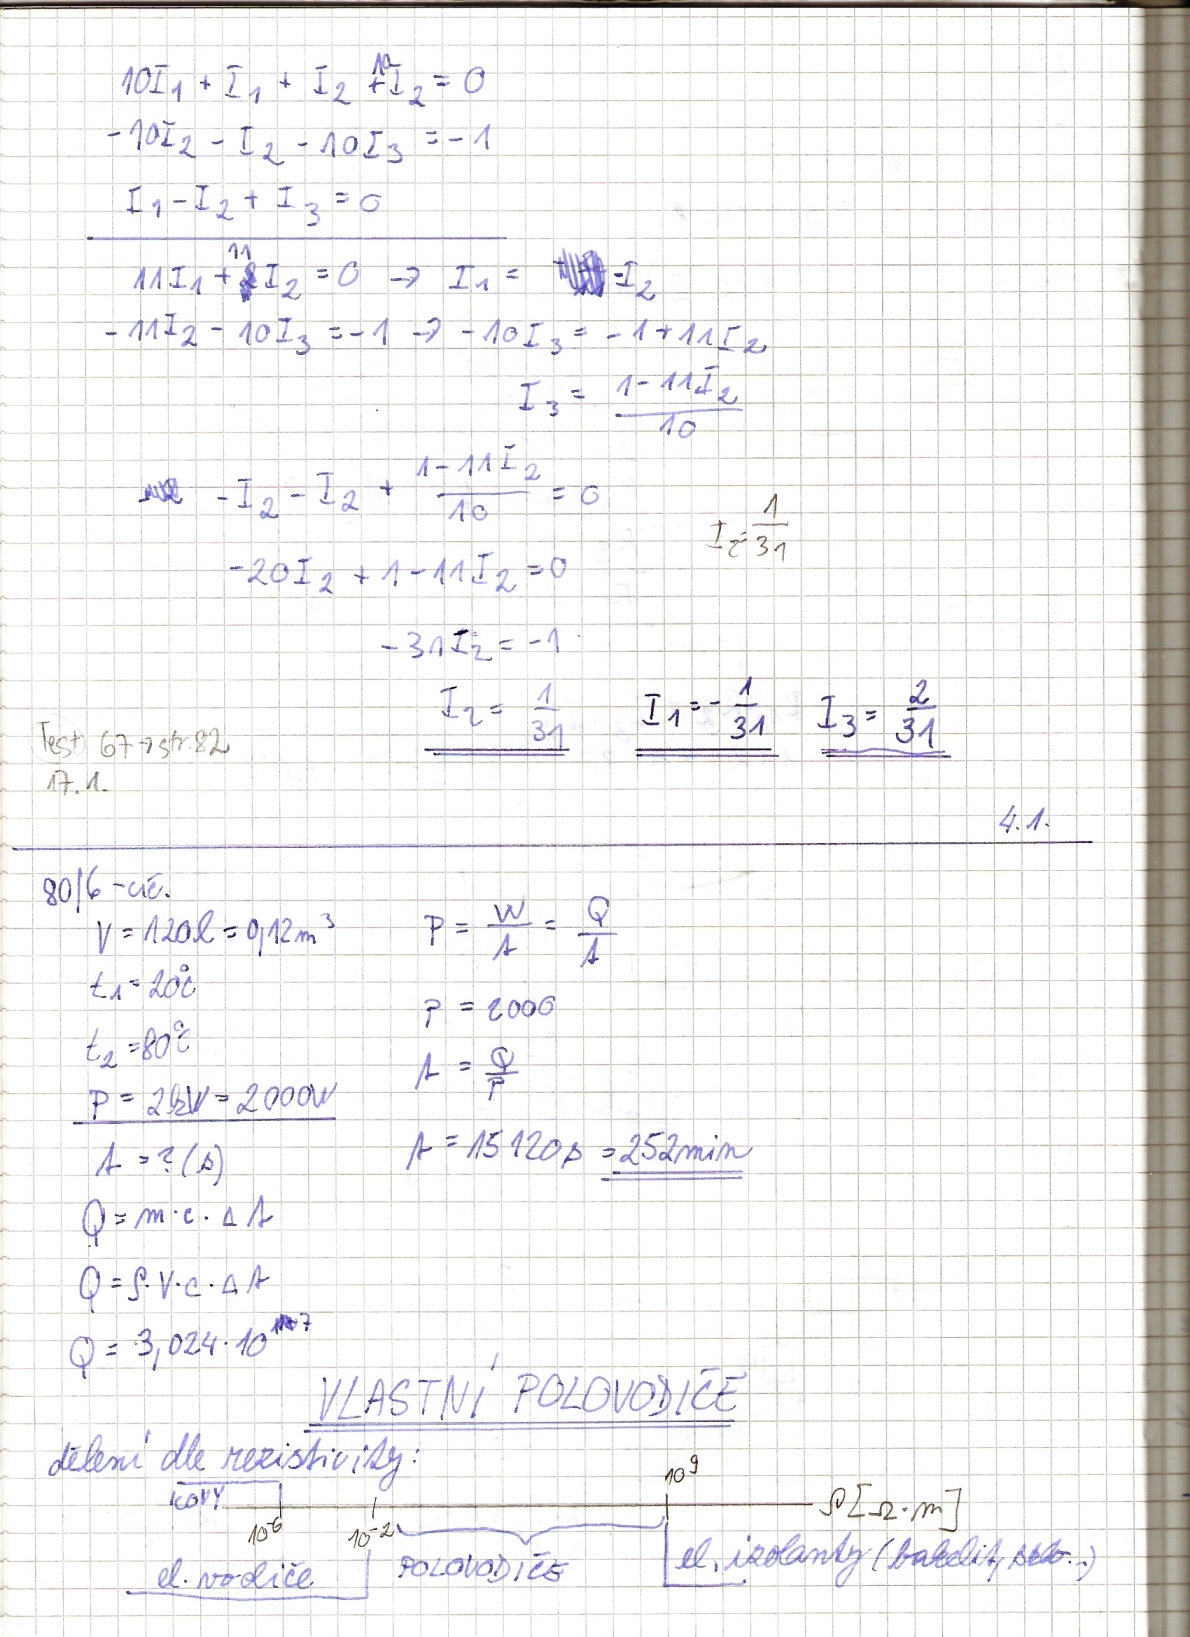 10I₁ + I₁ + I₂ + 10I₂ = 0
-10I₂ - I₂ - 10I₃ = -1
I₁ - I₂ + I₃ = 0
11I₁ + 11I₂ = 0 → I₁ = -I₂
-11I₂ - 10I₃ = -1 → -10I₃ = -1+11I₂
I₃ = (1-11I₂)/10
-I₂ - I₂ + (1-11I₂)/10 = 0
I₂ = 1/31
-20I₂ + 1 - 11I₂ = 0
-31I₂ = -1
I₂ = 1/31 I₁ = -1/31 I₃ = 2/31
Test 67 → str. 82
17.1.
4.1.
80/6 - cvič.
V = 120l = 0,12m³ P = W/t = Q/t
t₁ = 20°C
P = 2000
t₂ = 80°C
t = Q/P
P = 2kW = 2000W
t = ? (s) t = 15120s = 252min
Q = m·c·Δt
Q = ρ·V·c·Δt
Q = 3,024·10⁷
VLASTNÍ POLOVODIČE
dělení dle rezistivity:
KOVY 10⁻⁶ 10⁻² 10⁹ ρ[Ω·m]
el. vodiče POLOVODIČE el. izolanty (bakelit, sklo..)